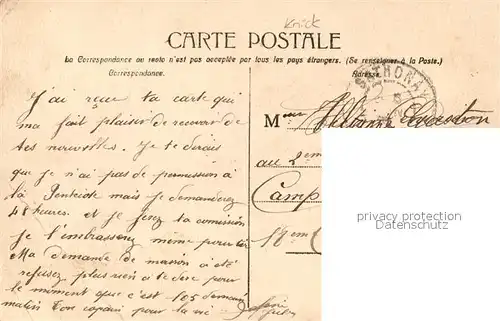 Krick
CARTE POSTALE
La Correspondance au recto n'est pas acceptée par tous les pays étrangers. (Se renseigner à la Poste.)
Correspondance. Adresse.
SATHONAY
J'ai reçu ta carte qui
ma fait plaisir de recevoir de
tes nouvelles. Je te dirais
que je n'ai pas de permission à
la Pentecote mais je demanderez
48 heures. et je ferez ta comission
je l'embrasserez même pour toi
Ma demande de maison à été
refusez plus rien à te dire pour
le moment que c'est 105 demain
matin Ton copain pour la vie
M
au 2em
Camp
privacy protection
www.oldthing.de